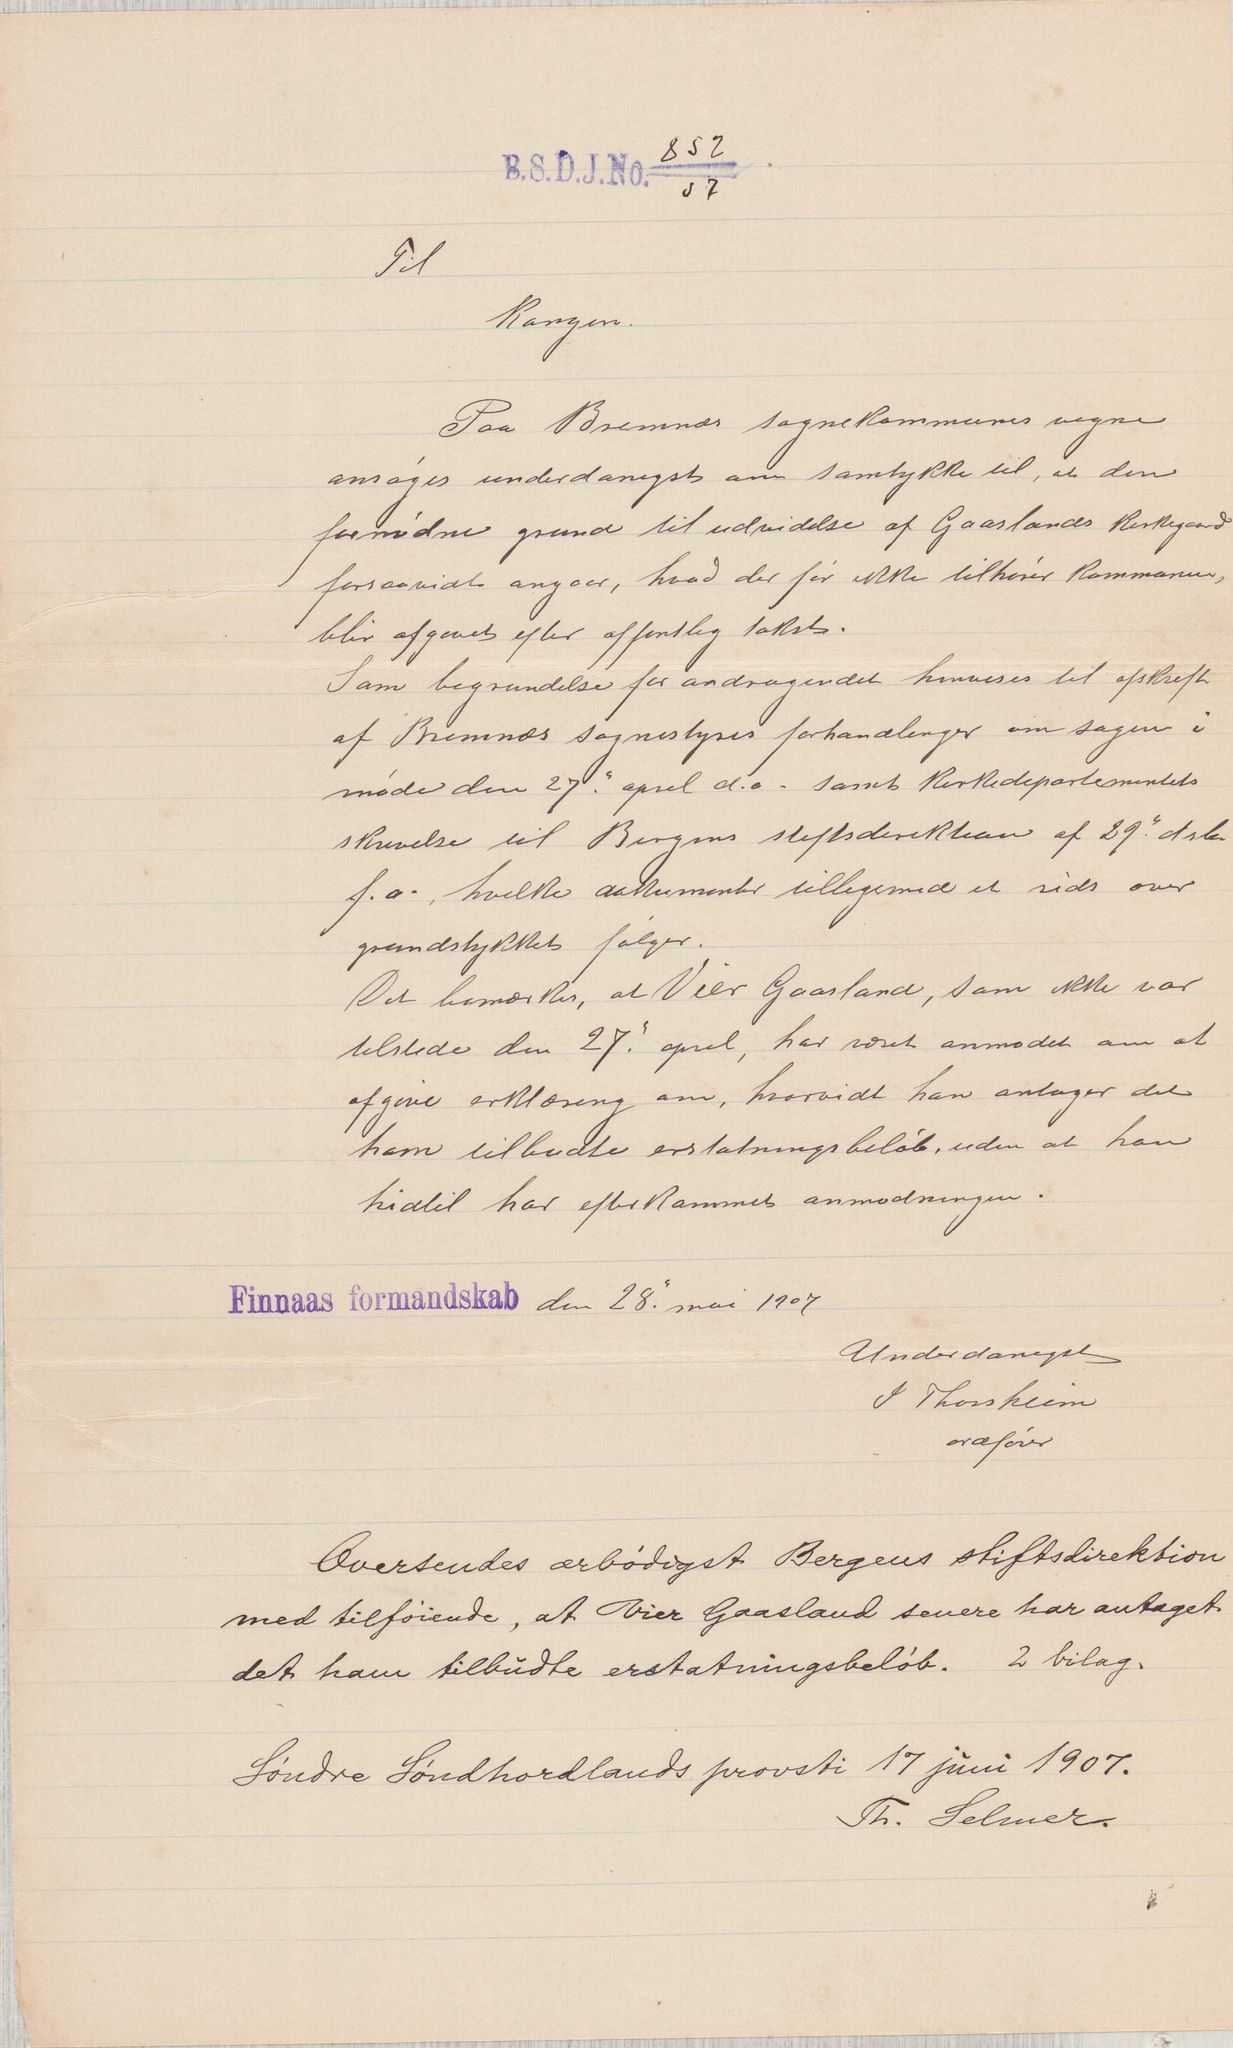 B.S.D.J.No. 852
07
Til
Kongen.
Paa Bremnæs sognekommunes vegne
ansøges underdanigst om samtykke til, at den
fornødne grund til udvidelse af Gaaslands kirkegaard
forsaavidt angaar, hvad der før ikke tilhører kommunen,
blir afgivet efter offentlig takst.
Som begrundelse for andragendet henvises til afskrift
af Bremnæs sognestyres forhandlinger om sagen i
møde den 27de april d.a. samt kirkedepartementets
skrivelse til Bergens stiftsdirektion af 29de
f.a., hvilke dokumenter tilligemed et rids over
grundstykket følger.
Det bemærkes, at Vier Gaasland, som ikke var
tilstede den 27de april, har været anmodet om at
afgive erklæring om, hvorvidt han antager det
ham tilbudte erstatningsbeløb, uden at han
hidtil har efterkommet anmodningen.
Finnaas formandskab den 28de mai 1907
Underdanigst
I Thorsheim
ordfører
Oversendes ærbødigst Bergens stiftsdirektion
med tilføiende, at Vier Gaasland senere har antaget
det ham tilbudte erstatningsbeløb. 2 bilag.
Søndre Søndhordlands provsti 17 juni 1907.
Th. Selmer.